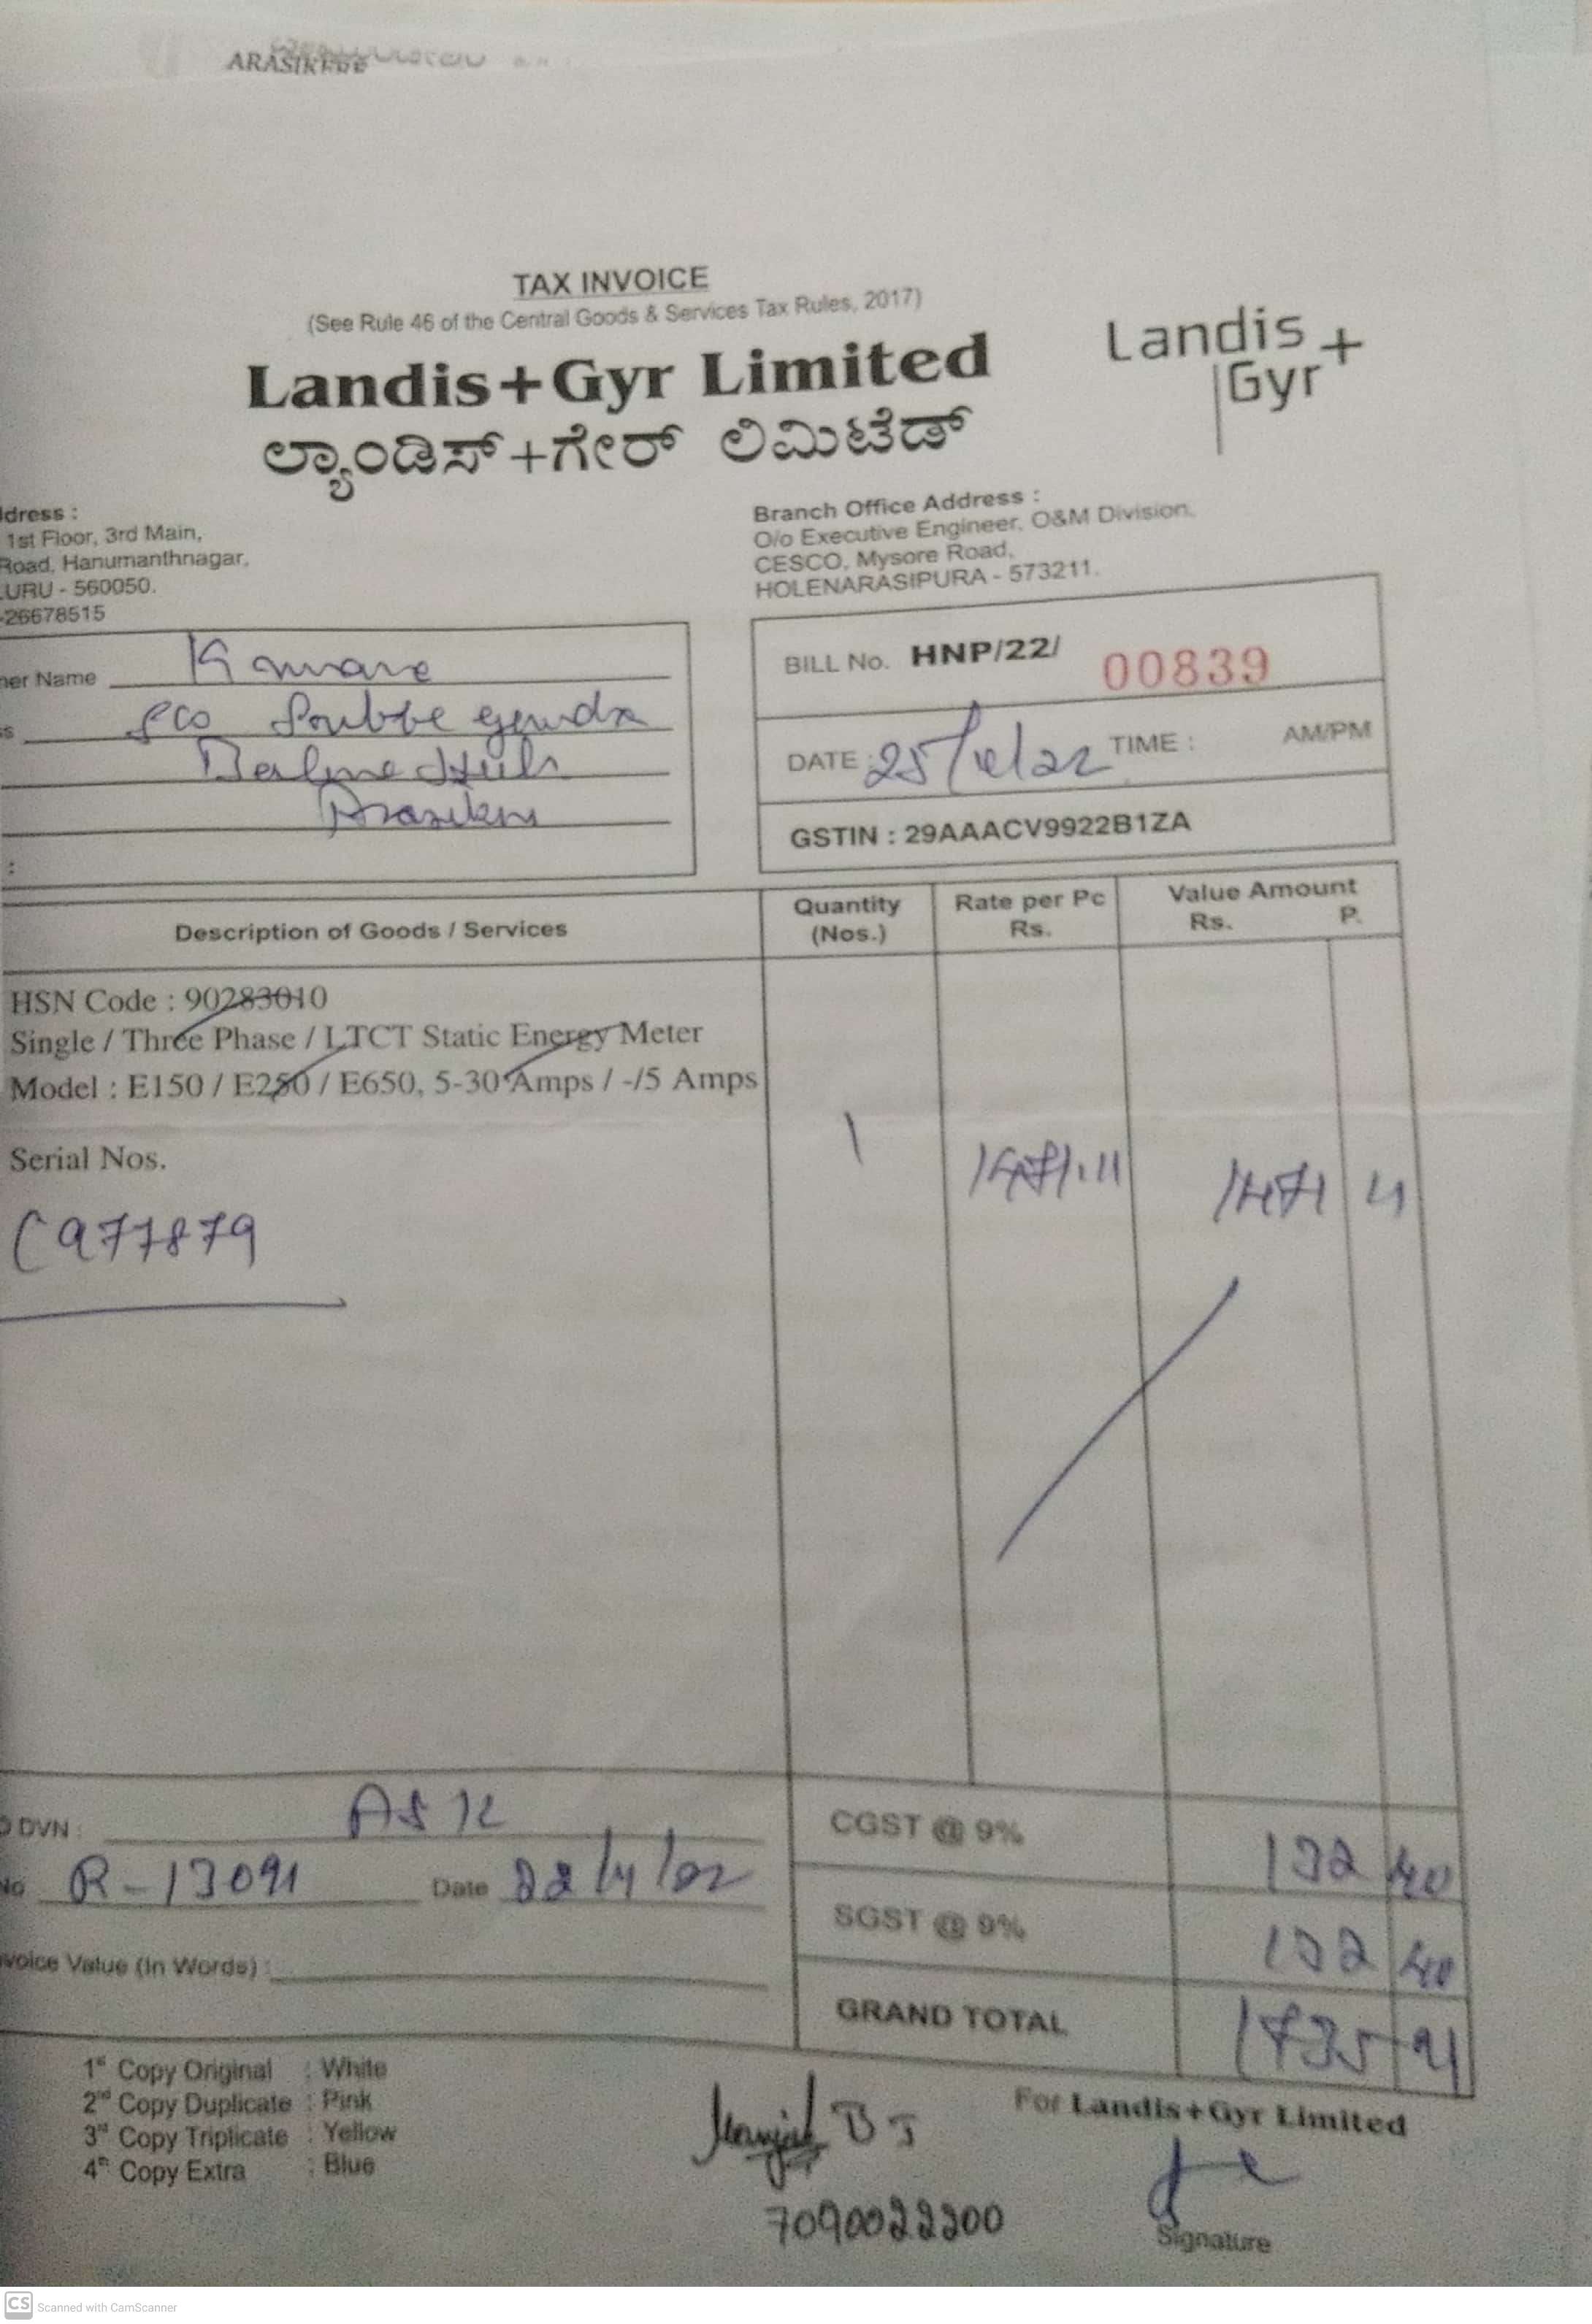 ARASIKERE
TAX INVOICE
(See Rule 46 of the Central Goods & Services Tax Rules, 2017)
Landis+Gyr Limited
ಲ್ಯಾಂಡಿಸ್+ಗೇರ್ ಲಿಮಿಟೆಡ್
Landis+
Gyr
dress :
1st Floor, 3rd Main,
Road, Hanumanthnagar,
URU - 560050.
-26678515
Branch Office Address :
O/o Executive Engineer, O&M Division,
CESCO, Mysore Road,
HOLENARASIPURA - 573211.
er Name
s
Arasikere
:
BILL No. HNP/22/ 00839
DATE : 25/ /22 TIME : AM/PM
GSTIN : 29AAACV9922B1ZA
Description of Goods / Services
Quantity
(Nos.)
Rate per Pc
Rs.
Value Amount
Rs. P.
HSN Code : 90283010
Single / Three Phase / LTCT Static Energy Meter
Model : E150 / E250 / E650, 5-30 Amps / -/5 Amps
Serial Nos.
C977879
1
1471.11
1471 11
DVN : ASK
No R-13091 Date 22/4/22
voice Value (In Words) :
CGST @ 9% 132 40
SGST @ 9% 132 40
GRAND TOTAL 1735 91
1st Copy Original : White
2nd Copy Duplicate : Pink
3rd Copy Triplicate : Yellow
4th Copy Extra : Blue
For Landis+Gyr Limited
7090022200
Signature
CS Scanned with CamScanner